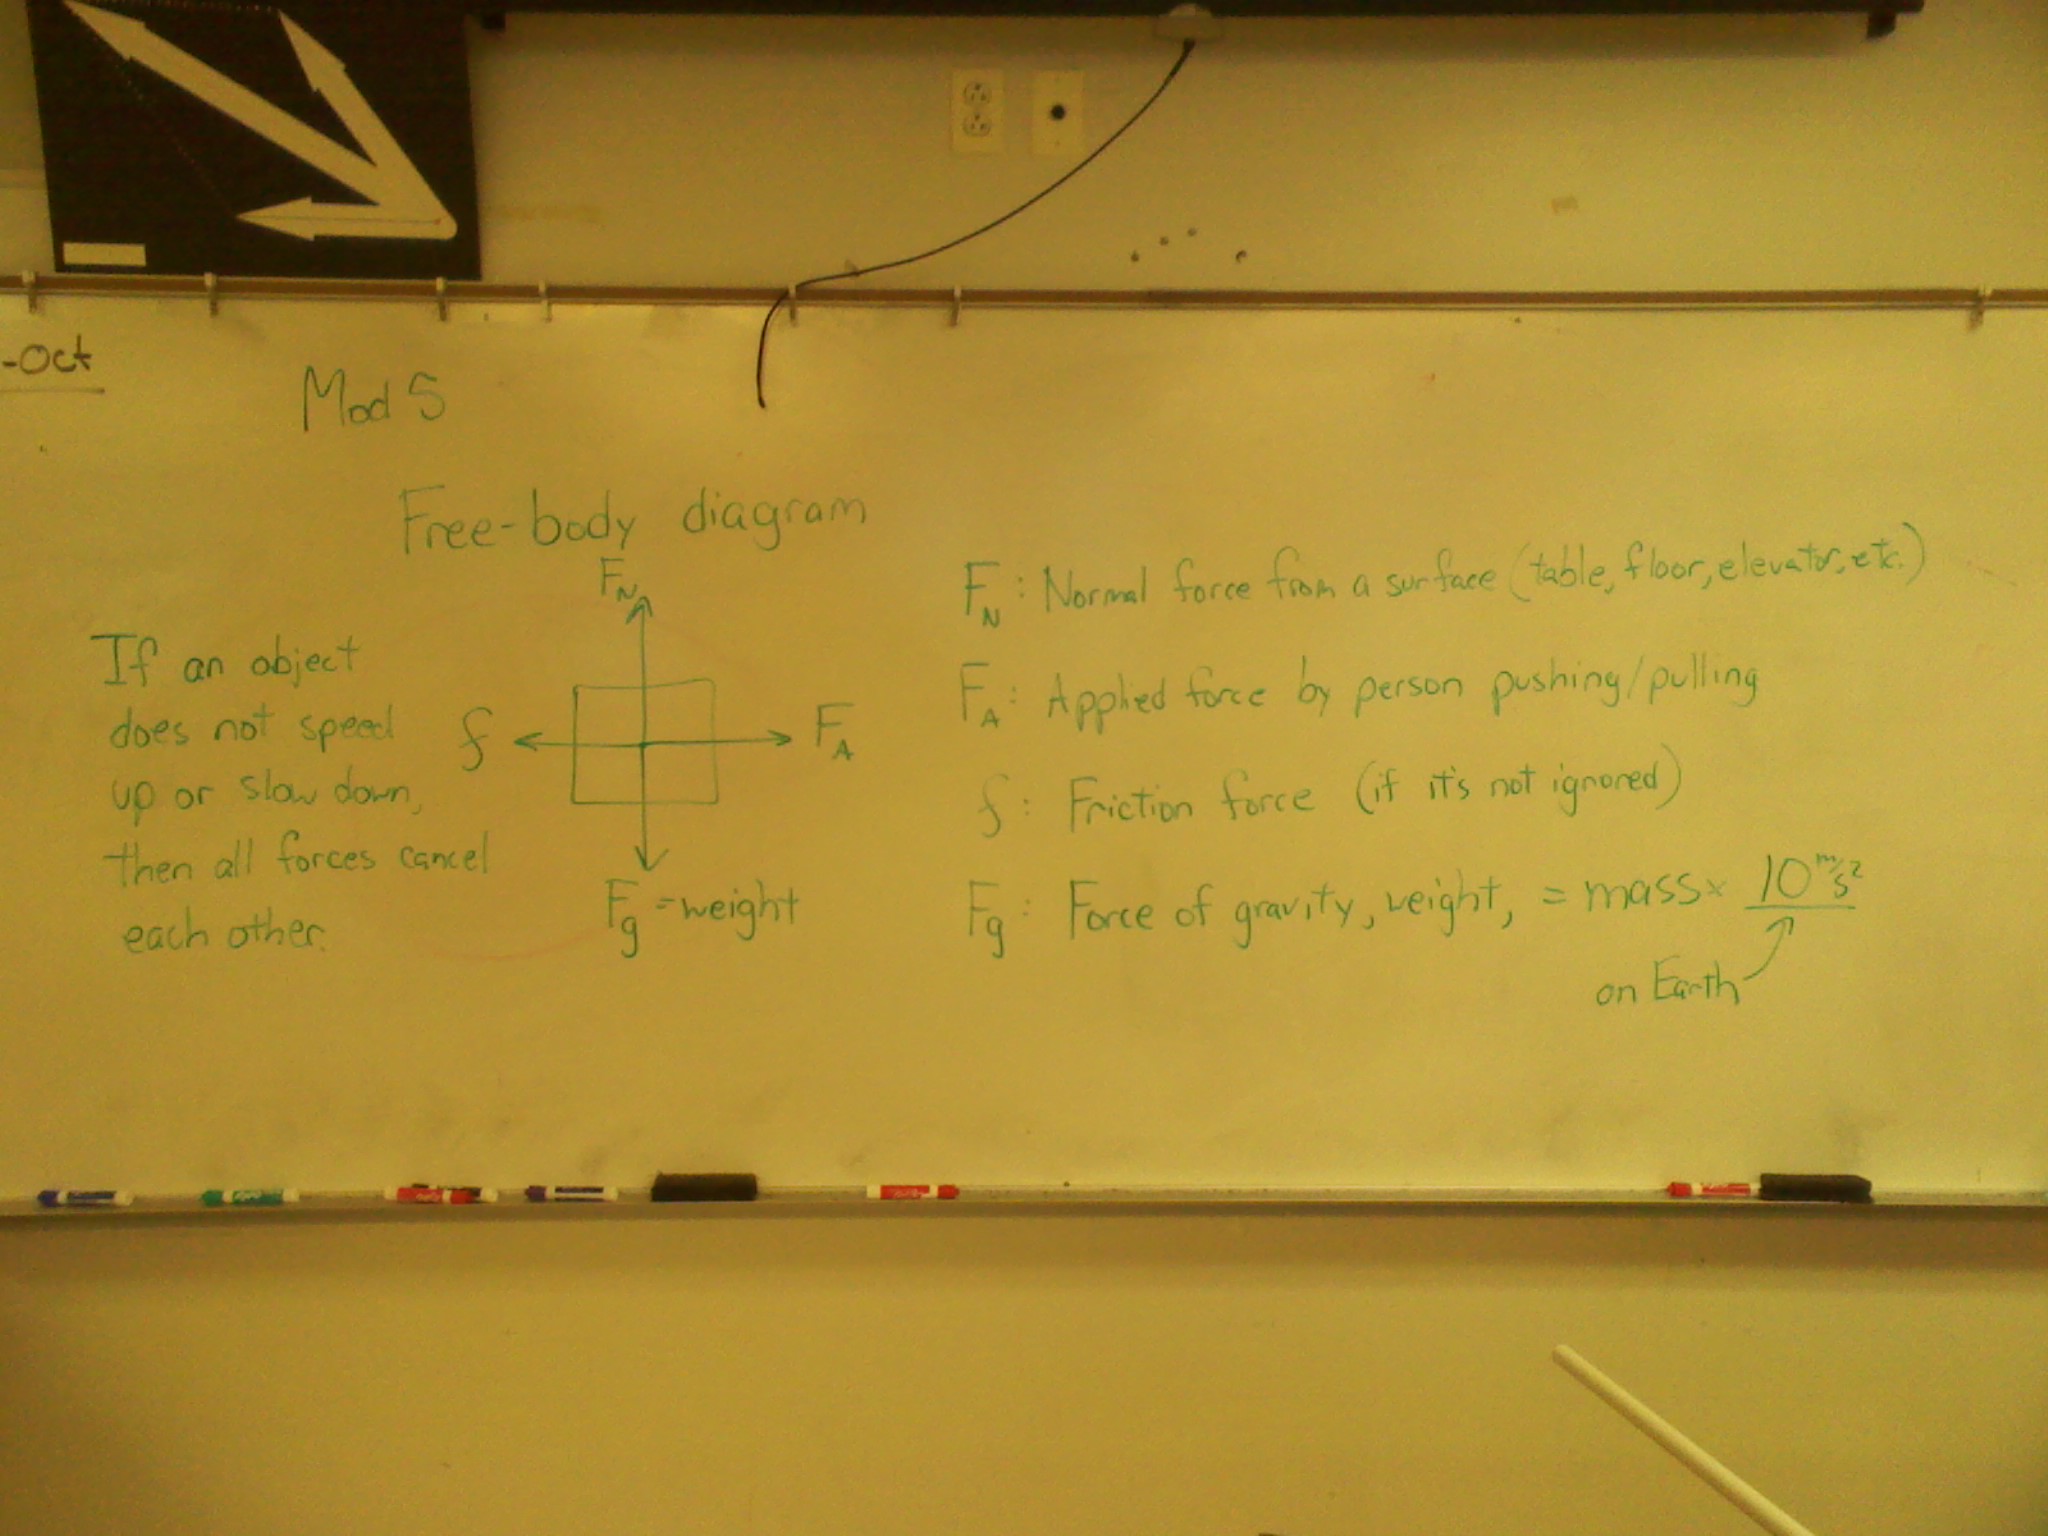 -Oct
Mod 5
Free-body diagram
If an object
does not speed
up or slow down,
then all forces cancel
each other.
F_N
f
F_A
F_g = weight
F_N : Normal force from a surface (table, floor, elevator, etc.)
F_A : Applied force by person pushing/pulling
f : Friction force (if it's not ignored)
F_g : Force of gravity, weight, = mass x 10 m/s²
on Earth